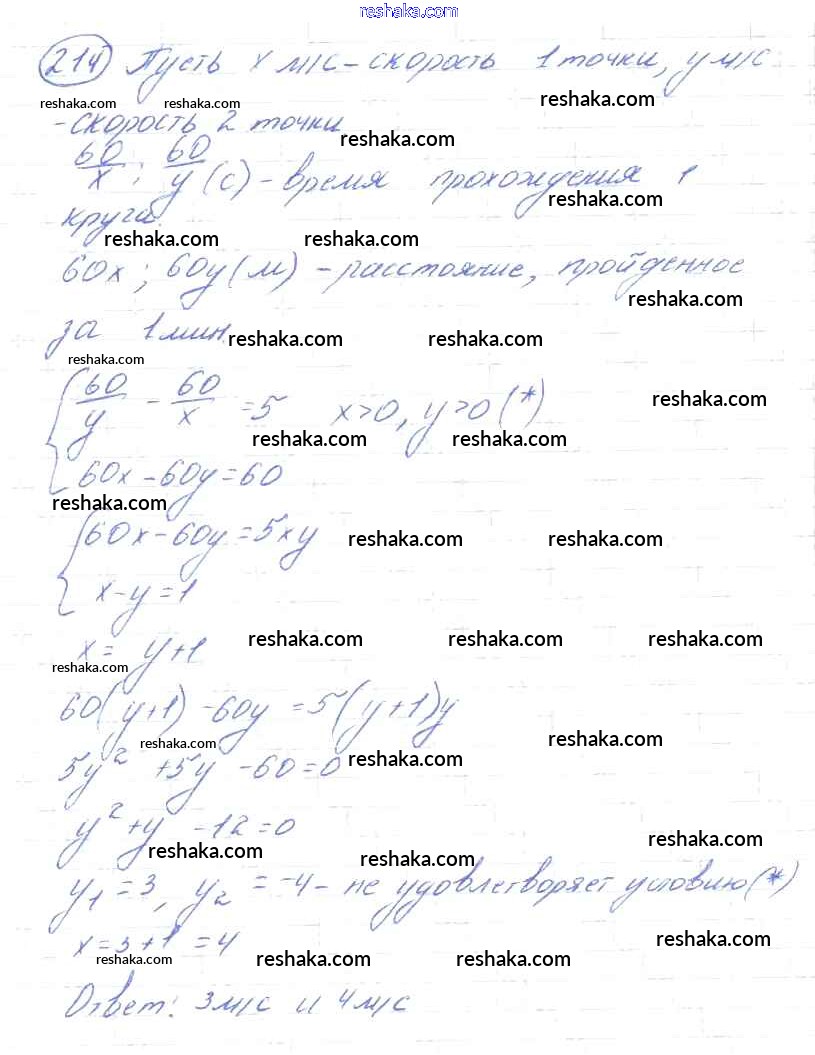 reshaka.com
214 Пусть x м/с – скорость 1 точки, y м/с
reshaka.com reshaka.com reshaka.com
– скорость 2 точки
reshaka.com
60/x ; 60/y (с) – время прохождения 1
reshaka.com
круга.
reshaka.com reshaka.com
60x ; 60y (м) – расстояние, пройденное
reshaka.com
за 1 мин.
reshaka.com reshaka.com
reshaka.com
{ 60/y – 60/x = 5 x>0, y>0 (*)
reshaka.com
reshaka.com reshaka.com
60x – 60y = 60
reshaka.com
{ 60x – 60y = 5xy
reshaka.com reshaka.com
x – y = 1
x = y+1
reshaka.com reshaka.com reshaka.com
reshaka.com
60(y+1) – 60y = 5(y+1)y
reshaka.com reshaka.com
5y² + 5y – 60 = 0
reshaka.com
y² + y – 12 = 0
reshaka.com
reshaka.com reshaka.com
y₁ = 3, y₂ = –4 – не удовлетворяет условию (*)
x = 3 + 1 = 4
reshaka.com
reshaka.com reshaka.com reshaka.com
Ответ: 3 м/с и 4 м/с